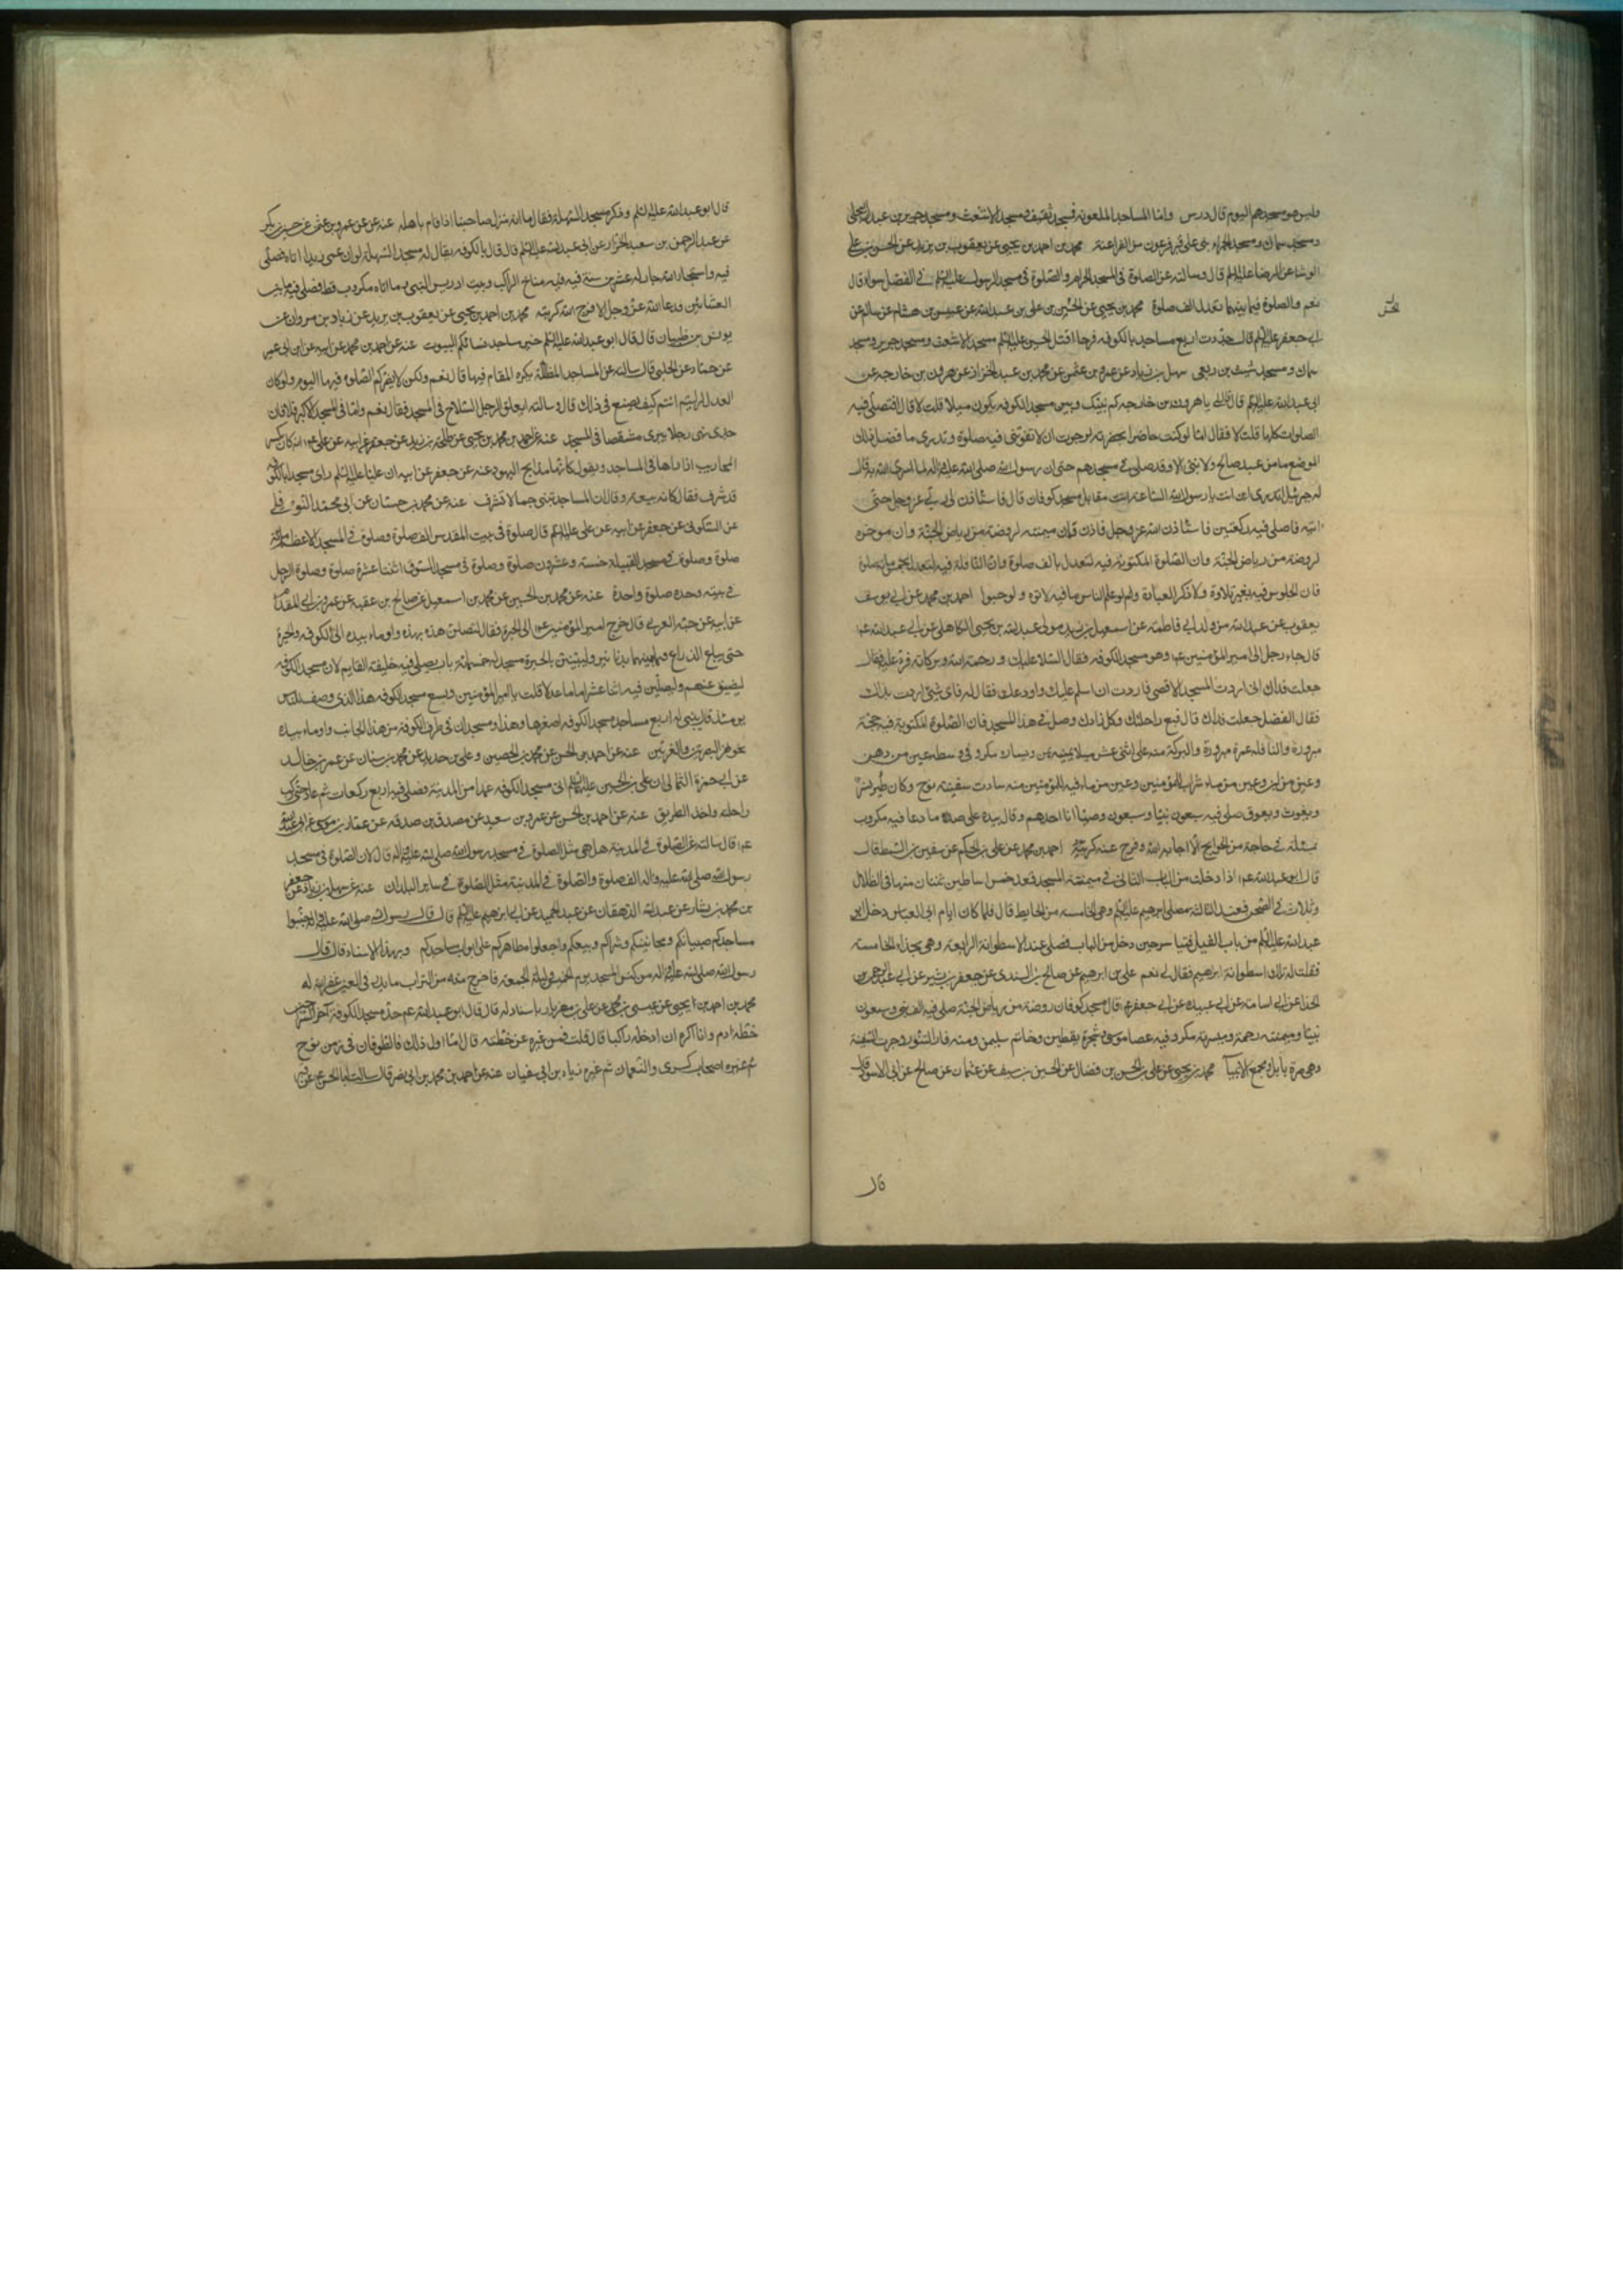 وليس هو مسجدهم اليوم قال درس واما المساجد الملعونة فمسجد ثقيف ومسجد الاشعث ومسجد جرير بن عبدالله البجلى
ومسجد سماك ومسجد الحمراء بنى على قبر فرعون من الفراعنة محمد بن احمد بن يحيى عن يعقوب بن يزيد عن الحسن بن على
الوشا عن الرضا عليه السلم قال وسالته عن الصلوة فى المسجد الحرام والصلوة فى مسجد الرسول عليه السلم فى الفضل سواء قال
نعم والصلوة فيما بينهما تعدل الف صلوة محمد بن يحيى عن الحسن بن على بن عبدالله عن عبيس بن هشام عن سالم عن
ابى جعفر عليه السلم قال جددت اربع مساجد بالكوفه فرحا لقتل الحسين عليه السلم مسجد الاشعث ومسجد جرير ومسجد
سماك ومسجد شبث بن ربعى سهل بن زياد عن عمرو بن عثمن عن محمد بن عبدالله الخزاز عن هرون بن خارجه عن
ابى عبدالله عليه السلم قال قال لى يا هرون بن خارجه كم بينك وبين مسجد الكوفه يكون ميلا قلت لا قال افتصلى فيه
الصلوات كلها قلت لا فقال اما لو كنت حاضرا بحضرته لرجوت ان لا تفوتنى فيه صلوة وتدرى ما فضل ذلك
الموضع ما من عبد صالح ولا نبى الا وقد صلى فى مسجدهم حتى ان رسول الله صلى الله عليه واله لما اسرى الله به قال
له جبرئيل اتدرى اين انت يا رسول الله الساعة انت مقابل مسجد كوفان قال فاستأذن لى ربى عز وجل حتى
اتيه فاصلى فيه ركعتين فاستأذن الله عز وجل فاذن له وان ميمنته لروضة من رياض الجنة وان موخره
لروضة من رياض الجنة وان الصلوة المكتوبة فيه لتعدل بالف صلوة وان النافلة فيه لتعدل بخمسمائة صلوة
فان الجلوس فيه بغير تلاوة ولا ذكر لعبادة ولو علم الناس ما فيه لاتوه ولو حبوا احمد بن محمد عن ابى يوسف
يعقوب بن عبدالله من ولد ابى فاطمة عن اسمعيل بن زيد مولى عبدالله بن يحيى الكاهلى عن ابى عبدالله عم
قال جاء رجل الى امير المومنين عم وهو فى مسجد الكوفه فقال السلام عليك ورحمة الله وبركاته فرد عليه فقال
جعلت فداك انى اردت المسجد الاقصى فاردت ان اسلم عليك واودعك فقال له فاى شئ اردت بذلك
فقال الفضل جعلت فداك قال فبع راحلتك وكل زادك وصل فى هذا المسجد فان الصلوة المكتوبة فيه حجة
مبرورة والنافلة عمرة مبرورة والبركة منه على اثنى عشر ميلا يمينه يمن ويساره مكر وفى وسطه عين من دهن
وعين من لبن وعين من ماء شراب للمؤمنين وعين من ماء فيه للمؤمنين منه سارت سفينة نوح وكان فيه نسر
ويغوث ويعوق صلى فيه سبعون نبيا وسبعون وصيا انا احدهم وقال بيده على صدره ما دعا فيه مكروب
بمسئلة فى حاجة من الحوايج الا اجابه الله وفرج عنه كربته احمد بن محمد عن على بن الحكم عن سفين بن السمط قال
قال ابو عبدالله عم اذا دخلت من الباب الثانى فى ميمنة المسجد فعد خمس اساطين ثنتان منها فى الظلال
وثلاث فى الصحن فعند الثالثة مصلى ابرهيم عليه السلم وهى الخامسة من الحايط قال فلما كان ايام ابى العباس دخل ابو
عبدالله عليه السلم من باب الفيل فتياسر حين دخل من الباب فصلى عند الاسطوانة الرابعة وهى بحذاء الخامسة
فقلت له تلك اسطوانة ابراهيم فقال لى نعم على بن ابرهيم عن صالح بن السندى عن جعفر بن بشير عن ابى عبد الرحمن
الحذا عن ابى اسامة عن ابى عبيدة عن ابى جعفر عم قال مسجد كوفان روضة من رياض الجنة صلى فيه الف نبى وسبعون
نبيا وميمنته رحمة وميسرته مكر وفيه عصا موسى وشجرة يقطين وخاتم سليمن ومنه فار التنور وجرت السفينة
وهى صرة بابل ومجمع الانبيا محمد بن يحيى عن على بن الحسن بن فضال عن الحسين بن سيف عن عثمان عن صالح عن ابى الاسود قال
قال
قال ابو عبدالله عليه السلم وذكر مسجد السهلة فقال اما انه منزل صاحبنا اذا قام باهله عنه عن عمرو بن عثمن عن حسين بن بكر
عن عبد الرحمن بن سعيد الخزاز عن ابى عبدالله عليه السلم قال قال بالكوفه مسجد يقال له مسجد السهلة لو ان عمى زيدا اتاه فصلى
فيه واستجار الله جار له عشرين سنة فيه مناخ الراكب وبيت ادريس النبى وما اتاه مكروب قط فصلى فيه ما بين
العشائين ودعا الله عز وجل الا فرج الله كربته محمد بن احمد بن يحيى عن يعقوب بن يزيد عن زياد بن مروان عن
يونس بن ظبيان قال قال ابو عبدالله عليه السلم خير مساجد نسائكم البيوت عنه عن احمد بن محمد عن ابيه عن ابن ابى عمير
عن حماد عن الحلبى قال سالته عن المساجد المظللة يكره المقام فيها قال نعم ولكن لا يضركم الصلوة فيها اليوم ولو كان
العدل لرايتم انتم كيف يصنع فى ذلك قال وسالته ايعلق الرجل السلاح فى المسجد فقال نعم واما فى المسجد الاكبر فلا فان
جدى نهى رجلا يبرى مشقصا فى المسجد عنه عن احمد بن محمد بن يحيى عن طلحة بن زيد عن جعفر عن ابيه عن على عم انه كان يكسر
المحاريب اذا راها فى المساجد ويقول كانها مذابح اليهود عنه عن جعفر عن ابيه ان عليا عليه السلم راى مسجدا بالكوفه
قد شرف فقال كانه بيعة وقال ان المساجد تبنى جما لا تشرف عنه عن محمد بن حسان عن ابى محمد النوفلى
عن السكونى عن جعفر عن ابيه عن على عليه السلم قال صلوة فى بيت المقدس الف صلوة وصلوة فى المسجد الاعظم مائة
صلوة وصلوة فى مسجد القبيلة خمسة وعشرون صلوة وصلوة فى مسجد السوق اثنتا عشرة صلوة وصلوة الرجل
فى بيته وحده صلوة واحدة عنه عن محمد بن الحسين عن محمد بن اسمعيل عن صالح بن عقبة عن عمرو بن ابى المقدام
عن ابيه عن حبة العربى قال خرج امير المؤمنين عم الى الحيرة فقال لتصلن هذه بهذه واوماء بيده الى الكوفه والحيرة
حتى يباع الذراع فيما بينهما بدنانير وليبنين بالحيرة مسجد له خمسمائة باب يصلى فيه خليفة القايم لان مسجد الكوفه
ليضيق عنهم وليصلين فيه اثنا عشر اماما عدلا قلت يا امير المؤمنين ويسع مسجد الكوفه هذا الذى وصفت الناس
يومئذ قال يبنى له اربع مساجد مسجد الكوفه اصغرها وهذا ومسجدان فى طرفى الكوفه من هذا الجانب واوماء بيده
نحو نهر البصريين والغريين عنه عن احمد بن الحسن عن محمد بن الحصين وعلى بن حديد عن محمد بن سنان عن عمرو بن خالد
عن ابى حمزة الثمالى ان على بن الحسين عليهما السلم اتى مسجد الكوفه عمدا من المدينة فصلى فيه اربع ركعات ثم عاد حتى ركب
راحلته واخذ الطريق عنه عن احمد بن الحسن عن عمرو بن سعيد عن مصدق بن صدقه عن عمار بن موسى عن ابى عبدالله
عم قال سالته عن الصلوة فى المدينة هل هى مثل الصلوة فى مسجد رسول الله صلى الله عليه واله قال لا ان الصلوة فى مسجد
رسول الله صلى الله عليه واله الف صلوة والصلوة فى المدينة مثل الصلوة فى ساير البلدان عنه عن سهل بن زياد عن جعفر
بن محمد بن بشار عن عبدالله الدهقان عن عبد الحميد عن ابى ابرهيم عليه السلم قال قال رسول الله صلى الله عليه واله جنبوا
مساجدكم صبيانكم ومجانينكم وشراكم وبيعكم واجعلوا مطاهركم على ابواب مساجدكم وبهذا الاسناد قال قال
رسول الله صلى الله عليه واله من كنس المسجد يوم الخميس وليلة الجمعة فاخرج منه من التراب ما يذر فى العين غفر الله له
محمد بن احمد بن يحيى عن عيسى بن محمد عن على بن مهزيار باسناد له قال قال ابو عبدالله عم حد مسجد الكوفه آخر السراجين
خطه ادم وانا اكره ان ادخله راكبا قال قلت فمن غيره عن خطته قال اما اول ذلك فالطوفان فى زمن نوح
ثم غيره اصحاب كسرى والنعمان ثم غيره زياد بن ابى سفيان عنه عن احمد بن محمد بن ابى نصر قال سالت ابا الحسن عم عن